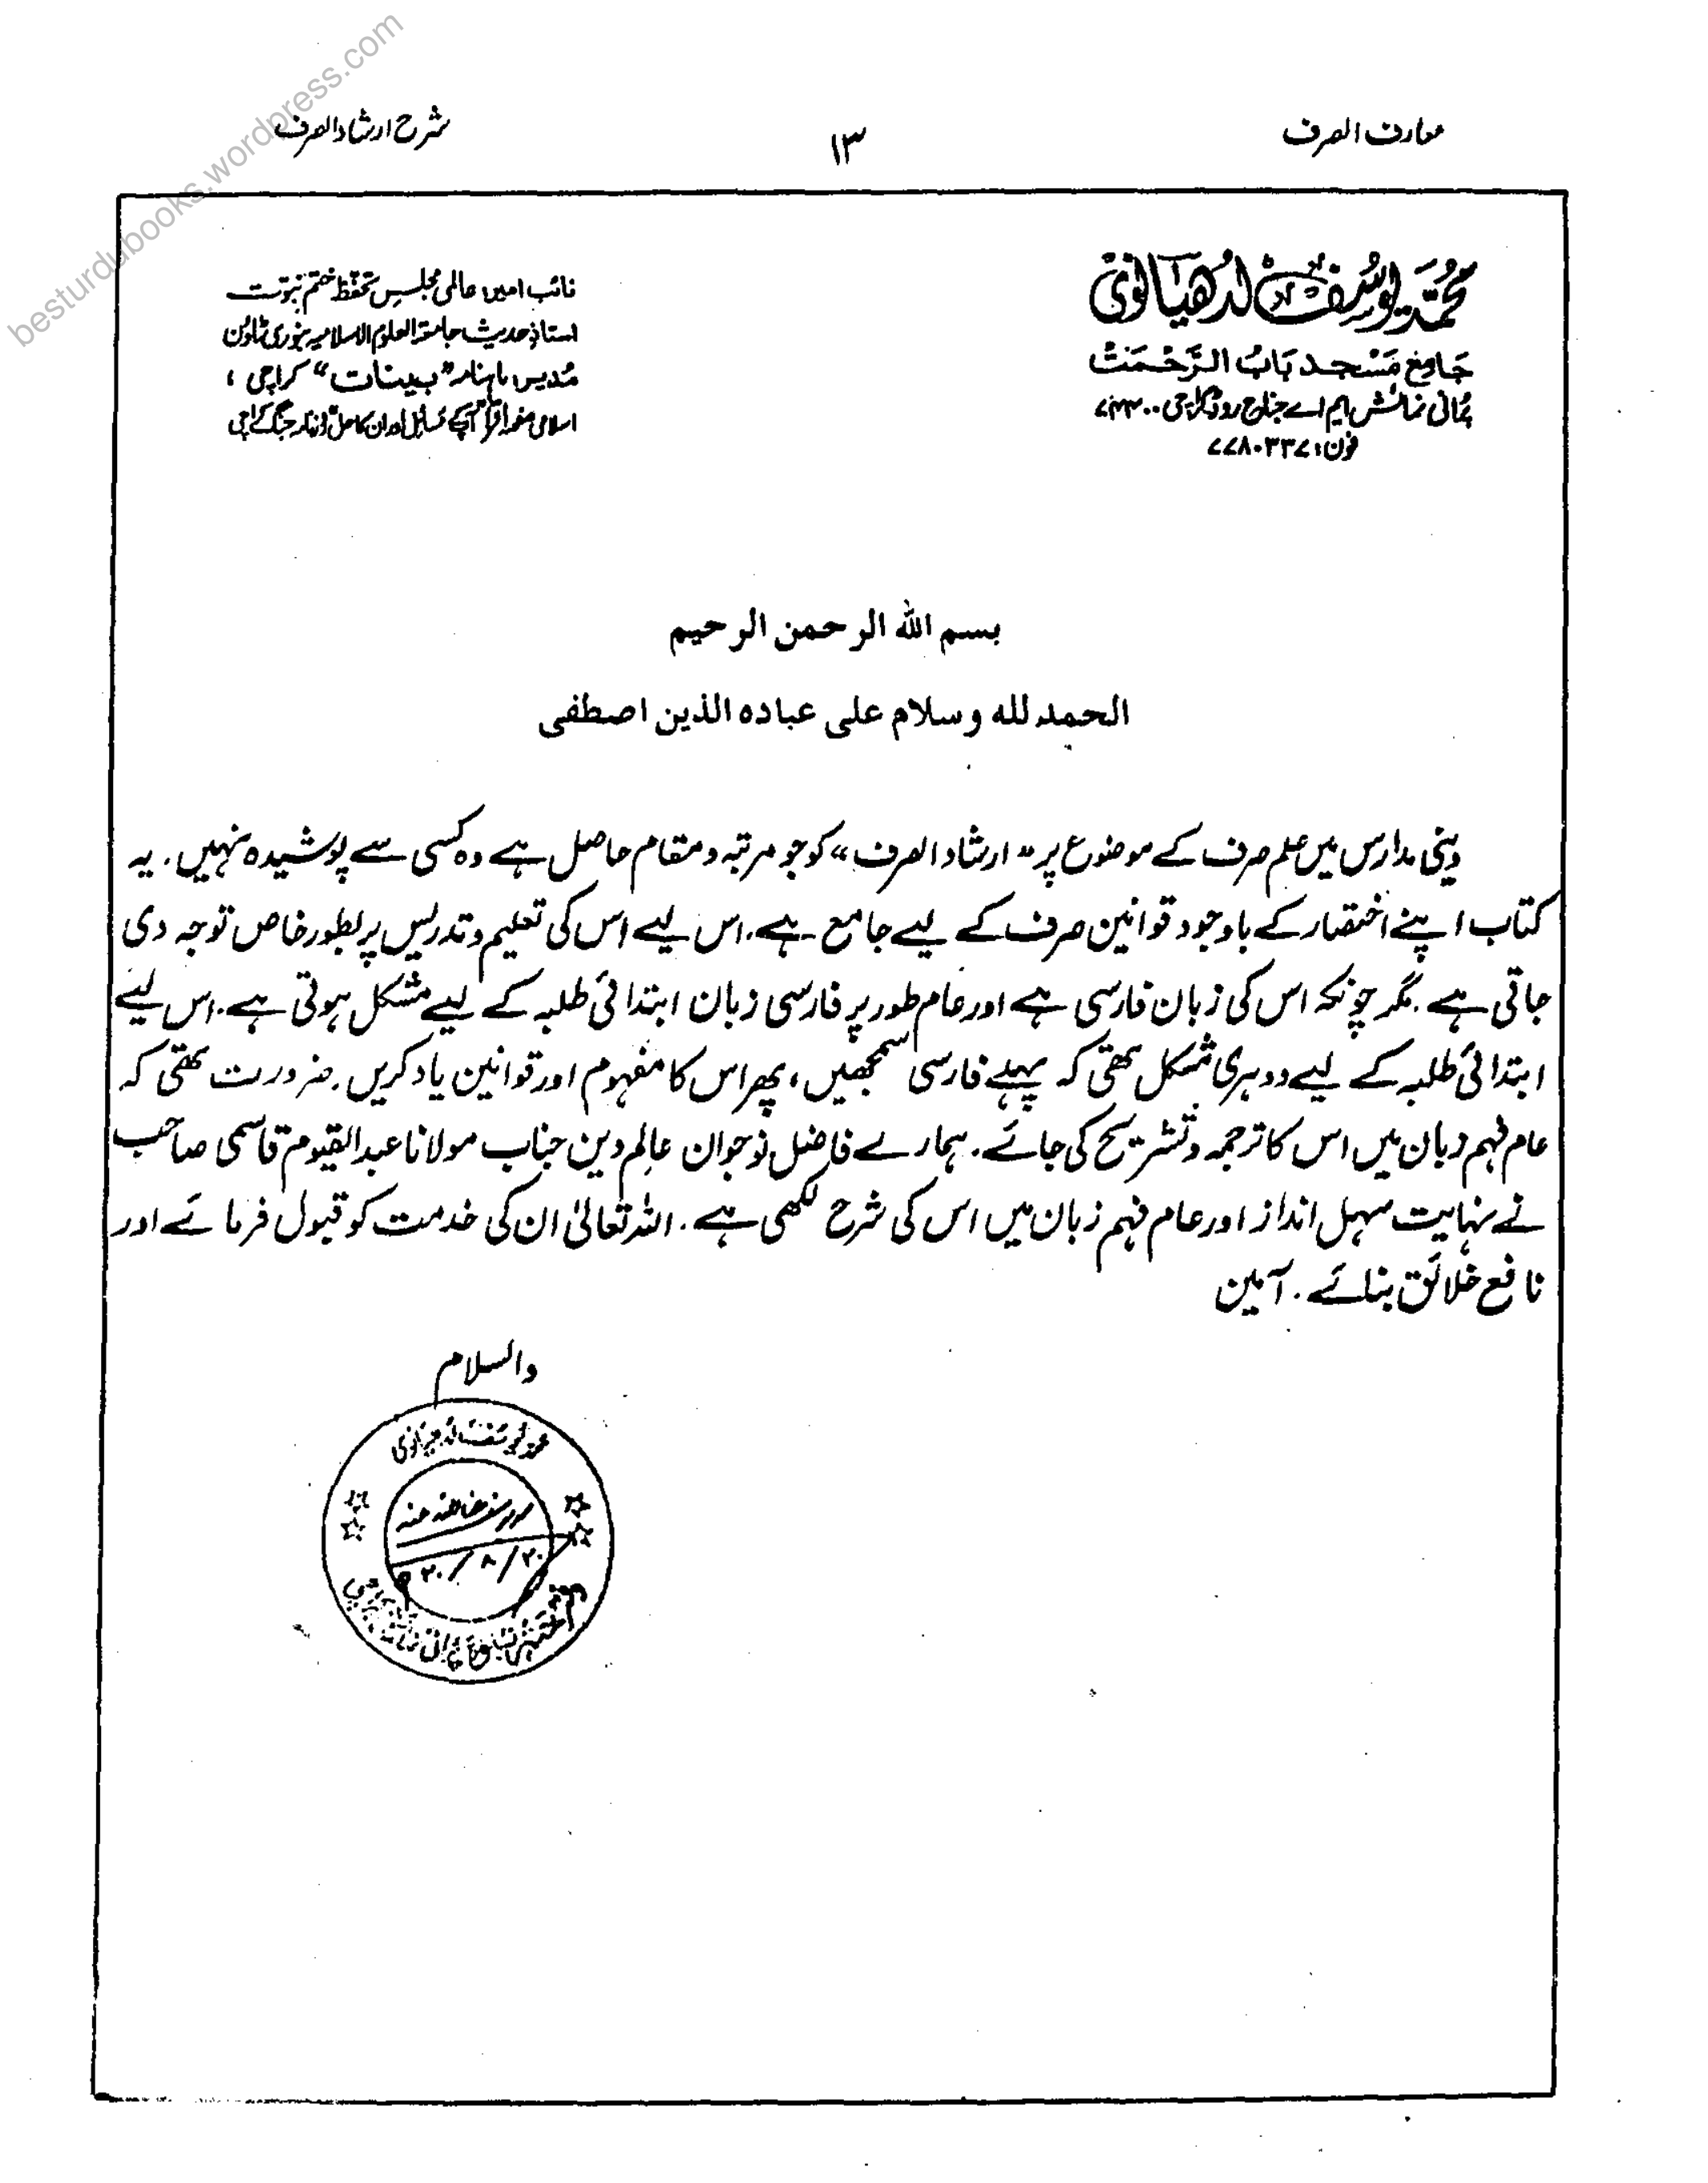 معارف الصرف
۱۳
شرح ارشاد الصرف
محمد یوسف لدھیانوی
جامع مسجد باب الرحمت
پرانی نمائش ایم اے جناح روڈ کراچی ۷۴۳۰۰
فون: ۷۷۸۰۳۳۷
نائب امیر: عالمی مجلس تحفظ ختم نبوت
استاذ حدیث جامعۃ العلوم الاسلامیہ بنوری ٹاؤن
مُدیر: ماہنامہ "بینات" کراچی ؛
اسلامی صفحہ اقرأ آپکے مسائل اور ان کا حل روزنامہ جنگ کراچی
بسم الله الرحمن الرحيم
الحمد لله وسلام على عباده الذين اصطفى
دینی مدارس میں علم صرف کے موضوع پر "ارشاد الصرف" کو جو مرتبہ و مقام حاصل ہے وہ کسی سے پوشیدہ نہیں. یہ
کتاب اپنے اختصار کے باوجود قوانین صرف کے لیے جامع ہے. اس لیے اس کی تعلیم و تدریس پر بطور خاص توجہ دی
جاتی ہے. مگر چونکہ اس کی زبان فارسی ہے اور عام طور پر فارسی زبان ابتدائی طلبہ کے لیے مشکل ہوتی ہے. اس لیے
ابتدائی طلبہ کے لیے دوہری مشکل تھی کہ پہلے فارسی سمجھیں، پھر اس کا مفہوم اور قوانین یاد کریں. ضرورت تھی کہ
عام فہم زبان میں اس کا ترجمہ و تشریح کی جائے. ہمارے فاضل نوجوان عالم دین جناب مولانا عبدالقیوم قاسمی صاحب
نے نہایت سہل انداز اور عام فہم زبان میں اس کی شرح لکھی ہے. اللہ تعالیٰ ان کی خدمت کو قبول فرمائے اور
نافع خلائق بنائے. آمین
والسلام
محمد یوسف لدھیانوی
۲۰/۸/۲۰ھ
besturdubooks.wordpress.com